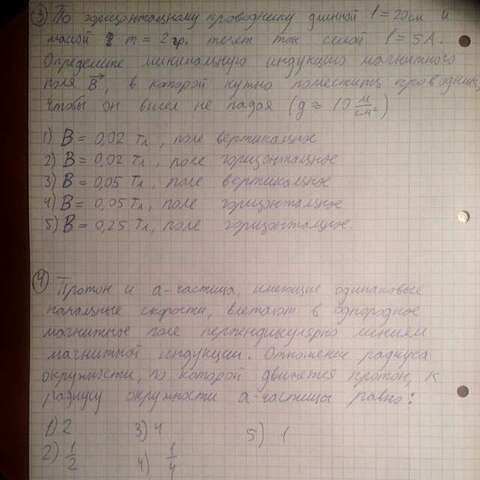 3) По горизонтальному проводнику длинной l = 20 см и
массой m = 2 гр. течет ток силой I = 5 А.
Определите минимальную индукцию магнитного
поля B⃗, в которой нужно поместить проводник,
чтобы он висел не падая (g ≈ 10 м/с²)
1) B = 0,02 Тл, поле вертикальное
2) B = 0,02 Тл, поле горизонтальное
3) B = 0,05 Тл, поле вертикальное
4) B = 0,05 Тл, поле горизонтальное
5) B = 0,25 Тл, поле горизонтальное.
4) Протон и α-частица, имеющие одинаковые
начальные скорости, влетают в однородное
магнитное поле перпендикулярно линиям
магнитной индукции. Отношение радиуса
окружности, по которой движется протон, к
радиусу окружности α-частицы равно:
1) 2 3) 4 5) 1
2) 1/2 4) 1/4